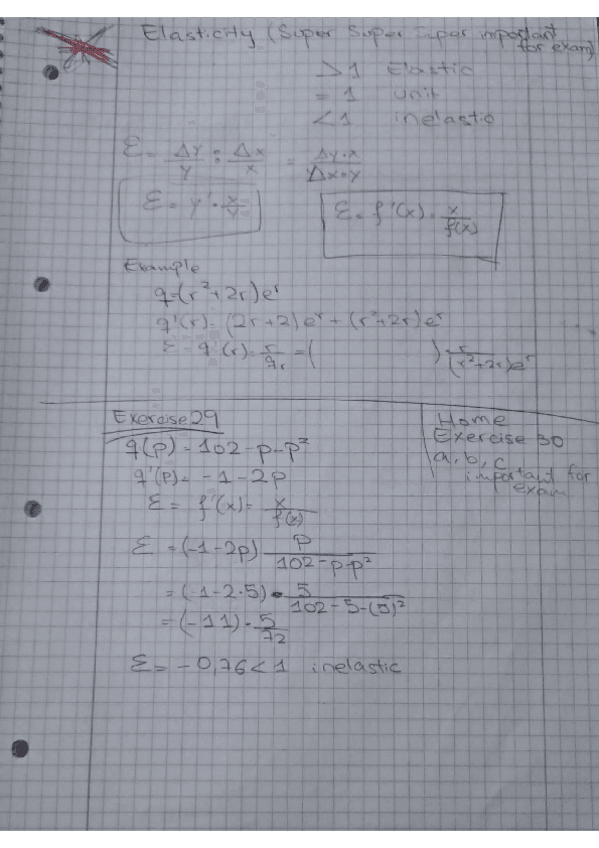 Elasticity (Super Super Super important for exam)
>1 Elastic
=1 unit
<1 inelastic
ε = Δy/y : Δx/x = Δy·x/Δx·y
ε = y' · x/y
ε = f'(x) · x/f(x)
Example
q=(r²+2r)eʳ
q'(r) = (2r+2)eʳ + (r²+2r)eʳ
ε = q'(r) · r/qᵣ = ( ) · r/(r²+2r)eʳ
Exercise 29
q(p) = 102-p-p²
q'(p) = -1-2p
ε = f'(x) = x/f(x)
ε = (-1-2p) p/102-p-p²
= (-1-2·5) · 5/102-5-(5)²
= (-11) · 5/72
ε = -0,76<1 inelastic
Home
Exercise 30
a, b, c
important for
exam